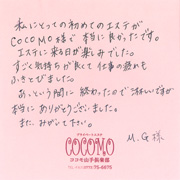 私にとっての初めてのエステが
COCOMO様で本当に良かったです。
エステに来る日が楽しみでした。
すごく気持ちが良くて仕事の疲れも
ふきとびました。
あっという間に終わったので淋しいですが
本当にありがとうございました。
また、みがいて下さい。
M.G様
プライベートエステ
COCOMO
ココモ山手倶楽部